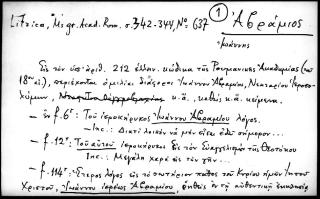 Litzica, Ms gr. Acad. Rom. σ. 342-344, Nº: 637
1
Ἀβράμιος
Ἰωάννης
Εἰς τὸν ὑπ' ἀριθ. 212 ἑλλην. κώδικα τῆς Ρουμανικῆς Ἀκαδημίας (τοῦ
18ου αἰ.), περιέχονται ὁμιλίαι διάφοροι Ἰωάννου Ἀβραμίου, Νεκταρίου Ἱεροσο-
λύμων, κ.ἄ., καθὼς κ.ἄ. κείμενα.
— ἐν f. 6r: Τοῦ ἱεροκήρυκος Ἰωάννου Ἀβραμίου λόγος.
— Inc.: Διατί λοιπὸν νὰ μὴν εἶναι ἐδῶ σήμερον...
— f. 12r: Τοῦ αὐτοῦ ἱεροκήρυκος εἰς τὸν Εὐαγγελισμὸν τῆς Θεοτόκου
Inc.: Μεγάλη χαρὰ εἰς τὸν γῆν...
— f. 114r: Ἕτερος λόγος εἰς τὸ σωτήριον πάθος τοῦ Κυρίου ἡμῶν Ἰησοῦ
Χριστοῦ, Ἰωάννου ἱερέως Ἀβραμίου, ῥηθεὶς ἐν τῇ αὐθεντικῇ ἐκκλησίᾳ